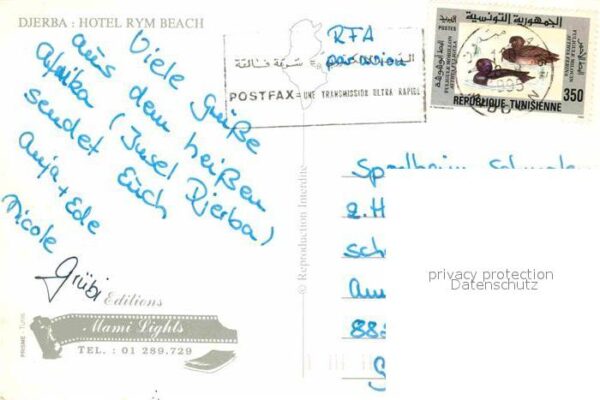 DJERBA : HOTEL RYM BEACH
Viele Grüße
aus dem heißen
Afrika (Insel Djerba)
sendet Euch
Anja + Ede
Nicole
Grübi
Editions
Mami Lights
TEL. : 01 289.729
PRISME - Tunis
© Reproduction Interdite
RFA
par avion
POSTFAX = UNE TRANSMISSION ULTRA RAPIDE
الجمهورية التونسية
POSTES
RÉPUBLIQUE TUNISIENNE
350
2. H
sch
Am
privacy protection
Datenschutz